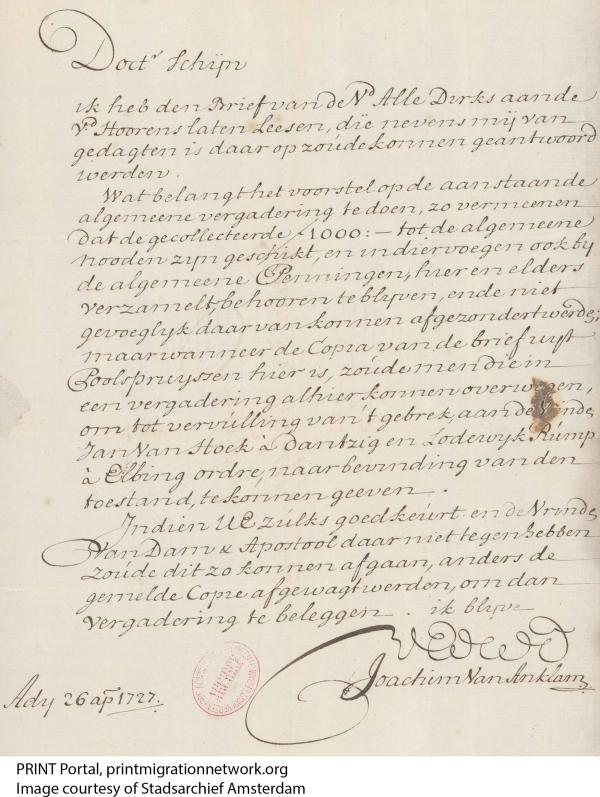 Doct.r Schijn
ik heb den Brief van de V.d Alle Dirks aan de
V.d Hoorens laten Leesen, die nevens mij van
gedagten is daar op zoúde konnen geantwoord
werden.
Wat belangt het voorstel op de aanstaande
algemeene vergadering te doen, zo vermeenen
dat de gecollecteerde ƒ1000:— tot de algemeene
nooden zijn geschikt, en in dier voegen ook bij
de algemeene Penningen, hier en elders
verzamelt, behooren te blijven, ende niet
gevoeglijk daar van konnen afgezondert werde;
maar wanneer de Copia van de brief uijt
Poolspruijssen hier is, zoúde men die in
een vergadering alhier konnen overwegen,
om tot vervúlling van 't gebrek, aan de Vrinde,
Jan Van Hoek à Dantzig en Lodewijk Rúmp
à Elbing ordre, naar bevinding van den
toestand, te konnen geeven.
Indien UE zúlks goedkeúrt en de Vrinde,
Van Dam & Apostool daar niet tegen hebben
zoúde dit zo konnen afgaan, anders de
gemelde Copie afgewagt werden, om dan
vergadering te beleggen. ik blijve
Joachim Van Anklam
Ady 26 ap.l 1727.
PRINT Portal, printmigrationnetwork.org
Image courtesy of Stadsarchief Amsterdam